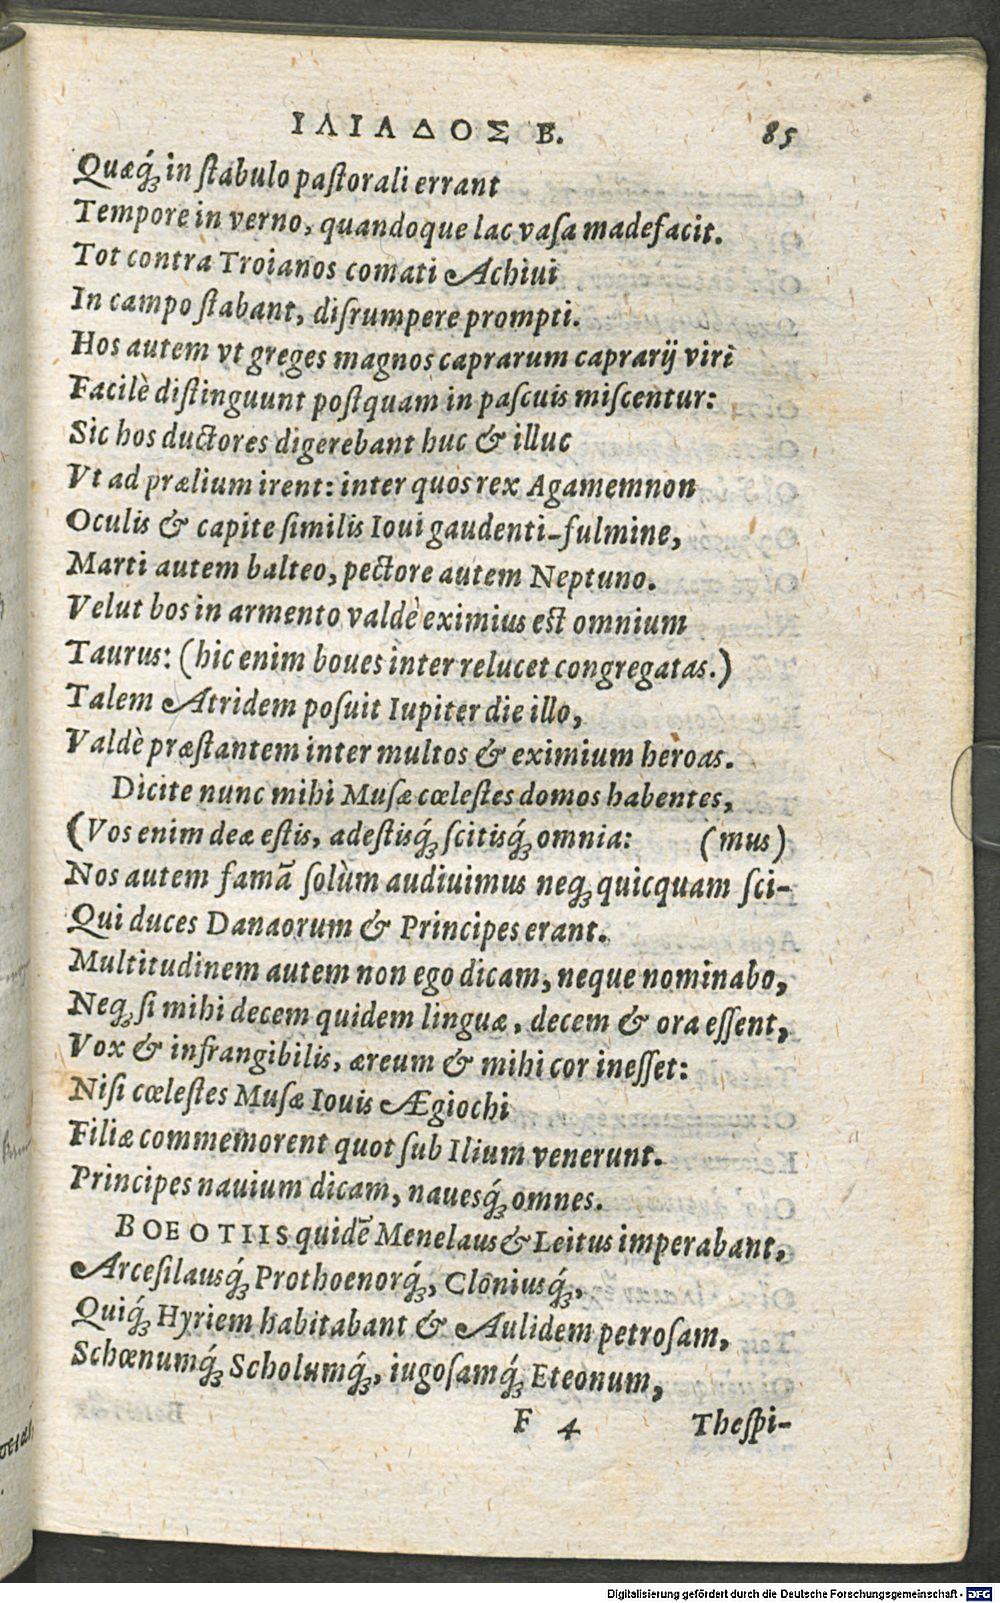 ΙΛΙΑΔΟΣ Β. 85
Quæq́; in ſtabulo paſtorali errant
Tempore in verno, quandoque lac vaſa madefacit.
Tot contra Troianos comati Achiui
In campo ſtabant, diſrumpere prompti.
Hos autem vt greges magnos caprarum caprarij viri
Facilè diſtinguunt poſtquam in paſcuis miſcentur:
Sic hos ductores digerebant huc & illuc
Vt ad prælium irent: inter quos rex Agamemnon
Oculis & capite ſimilis Ioui gaudenti-fulmine,
Marti autem balteo, pectore autem Neptuno.
Velut bos in armento valdè eximius est omnium
Taurus: (hic enim boues inter relucet congregatas.)
Talem Atridem poſuit Iupiter die illo,
Valdè præſtantem inter multos & eximium heroas.
Dicite nunc mihi Muſæ cœleſtes domos habentes,
(Vos enim deæ eſtis, adeſtisq́; ſcitisq́; omnia: (mus)
Nos autem famā ſolùm audiuimus neq; quicquam ſci-
Qui duces Danaorum & Principes erant.
Multitudinem autem non ego dicam, neque nominabo,
Neq; ſi mihi decem quidem linguæ, decem & ora eſſent,
Vox & infrangibilis, æreum & mihi cor ineſſet:
Niſi cœleſtes Muſæ Iouis Ægiochi
Filiæ commemorent quot ſub Ilium venerunt.
Principes nauium dicam, nauesq́; omnes.
BOEOTIIS quidē Menelaus & Leitus imperabant,
Arceſilausq́; Prothoenorq́;, Cloniusq́;,
Quiq́; Hyriem habitabant & Aulidem petroſam,
Schœnumq́; Scholumq́;, iugoſamq́; Eteonum,
F 4 Theſpi-
Digitalisierung gefördert durch die Deutsche Forschungsgemeinschaft - DFG